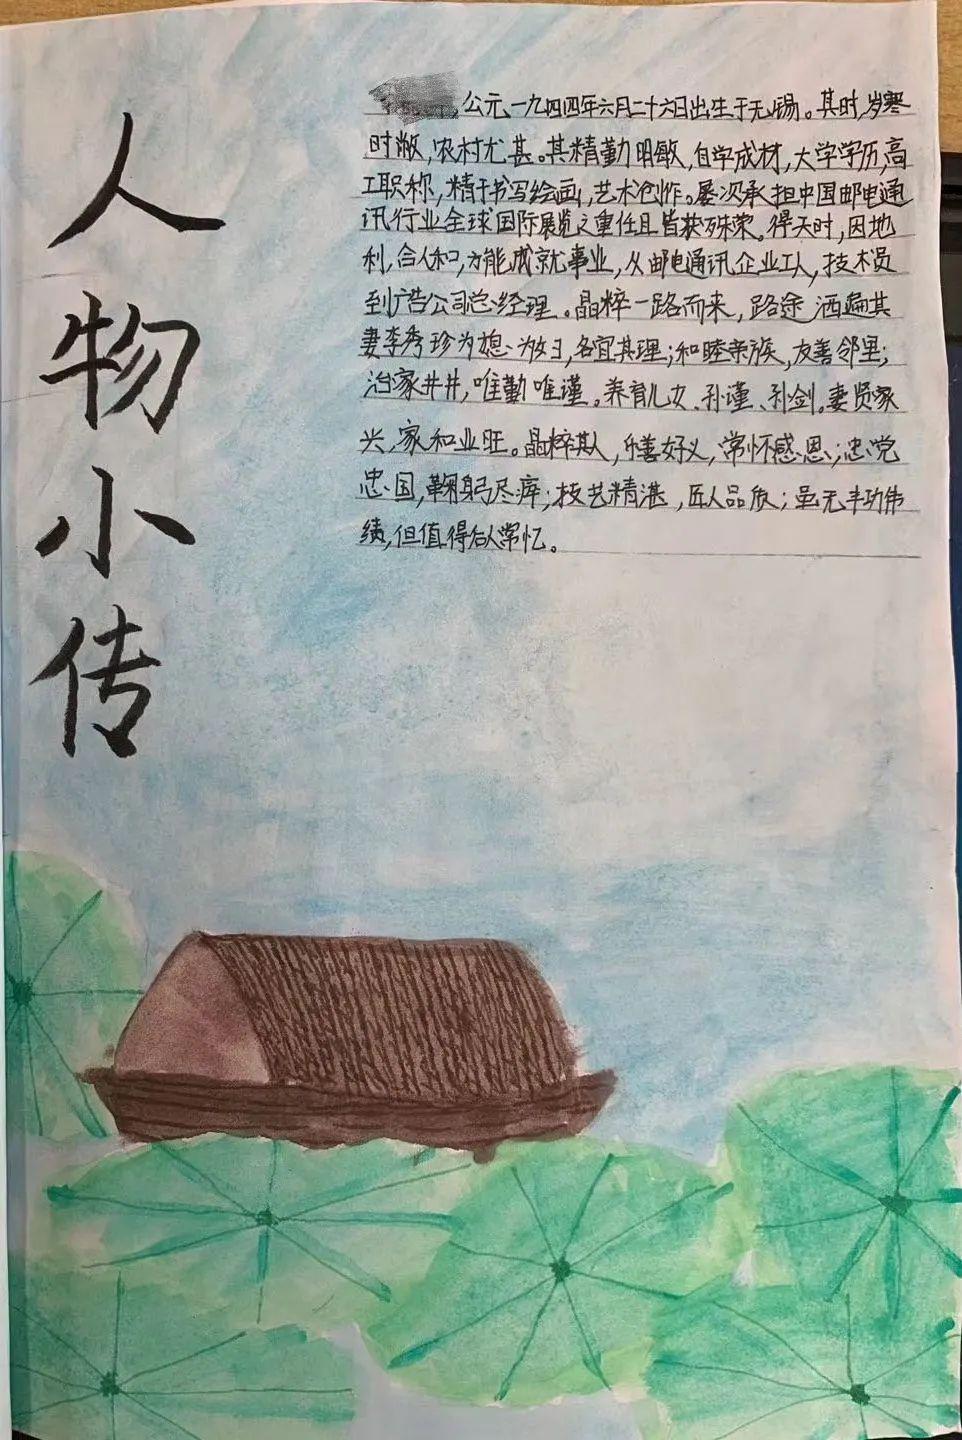 人物小传
公元一九四四年六月二十六日出生于无锡。其时,岁寒
时敝,农村尤甚。其精勤明敏,自学成材,大学学历,高
工职称,精于书写绘画,艺术创作。屡次承担中国邮电通
讯行业全球国际展览之重任且皆获殊荣。得天时,因地
利,合人和,方能成就事业,从邮电通讯企业工人,技术员
到广告公司总经理。晶粹一路而来,路途洒遍其
妻李秀珍为媳为妇,各宜其理;和睦亲族,友善邻里;
治家井井,唯勤唯谨。养育儿女、孙谨、孙剑。妻贤家
兴,家和业旺。晶粹其人,乐善好义,常怀感恩;忠党
忠国,鞠躬尽瘁;技艺精湛,匠人品质;虽无丰功伟
绩,但值得后人常忆。